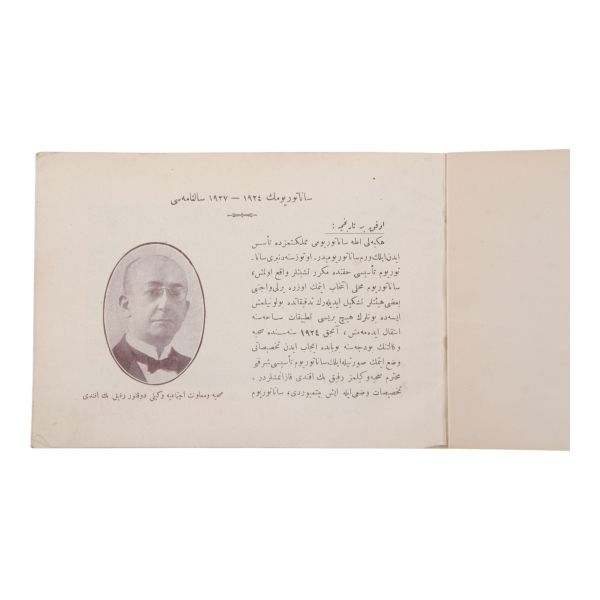 ساناتوریومك ١٩٢٤ — ١٩٢٧ سالنامه‌سی
اوفق بر تاریخچه :
هكبه‌لی اطه ساناتوریومی مملكتمزده تأسس
ایدن ایلك ورم ساناتوریومیدر. اوتوز سنه‌دنبری سانا-
توریوم تأسیسی حقنده مكرر تشبثلر واقع اولمش،
ساناتوریوم محلی انتخاب ایتمك اوزره یرلی واجنبی
بعضی هیئتلر تشكیل ایدیله‌رك تدقیقاتده بولونیلمش
ایسه‌ده بونلرك هیچ بریسی تطبیقات ساحه‌سنه
انتقال ایده‌مه‌مش، آنجق ١٩٢٤ سنه‌سنده صحیه
وكالتنك بودجه‌سنه بوبابده ایجاب ایدن تخصیصاتی
وضع ایتمك صورتیله ایلك ساناتوریوم تأسیسی شرفنی
محترم صحیه وكیلمز رفیق بك افندی قازانمشلردر.
تخصیصات وضعی ایله ایش بیتمیوردی، ساناتوریوم
صحیه ومعاونت اجتماعیه وكیلی دوقتور رفیق بك افندی